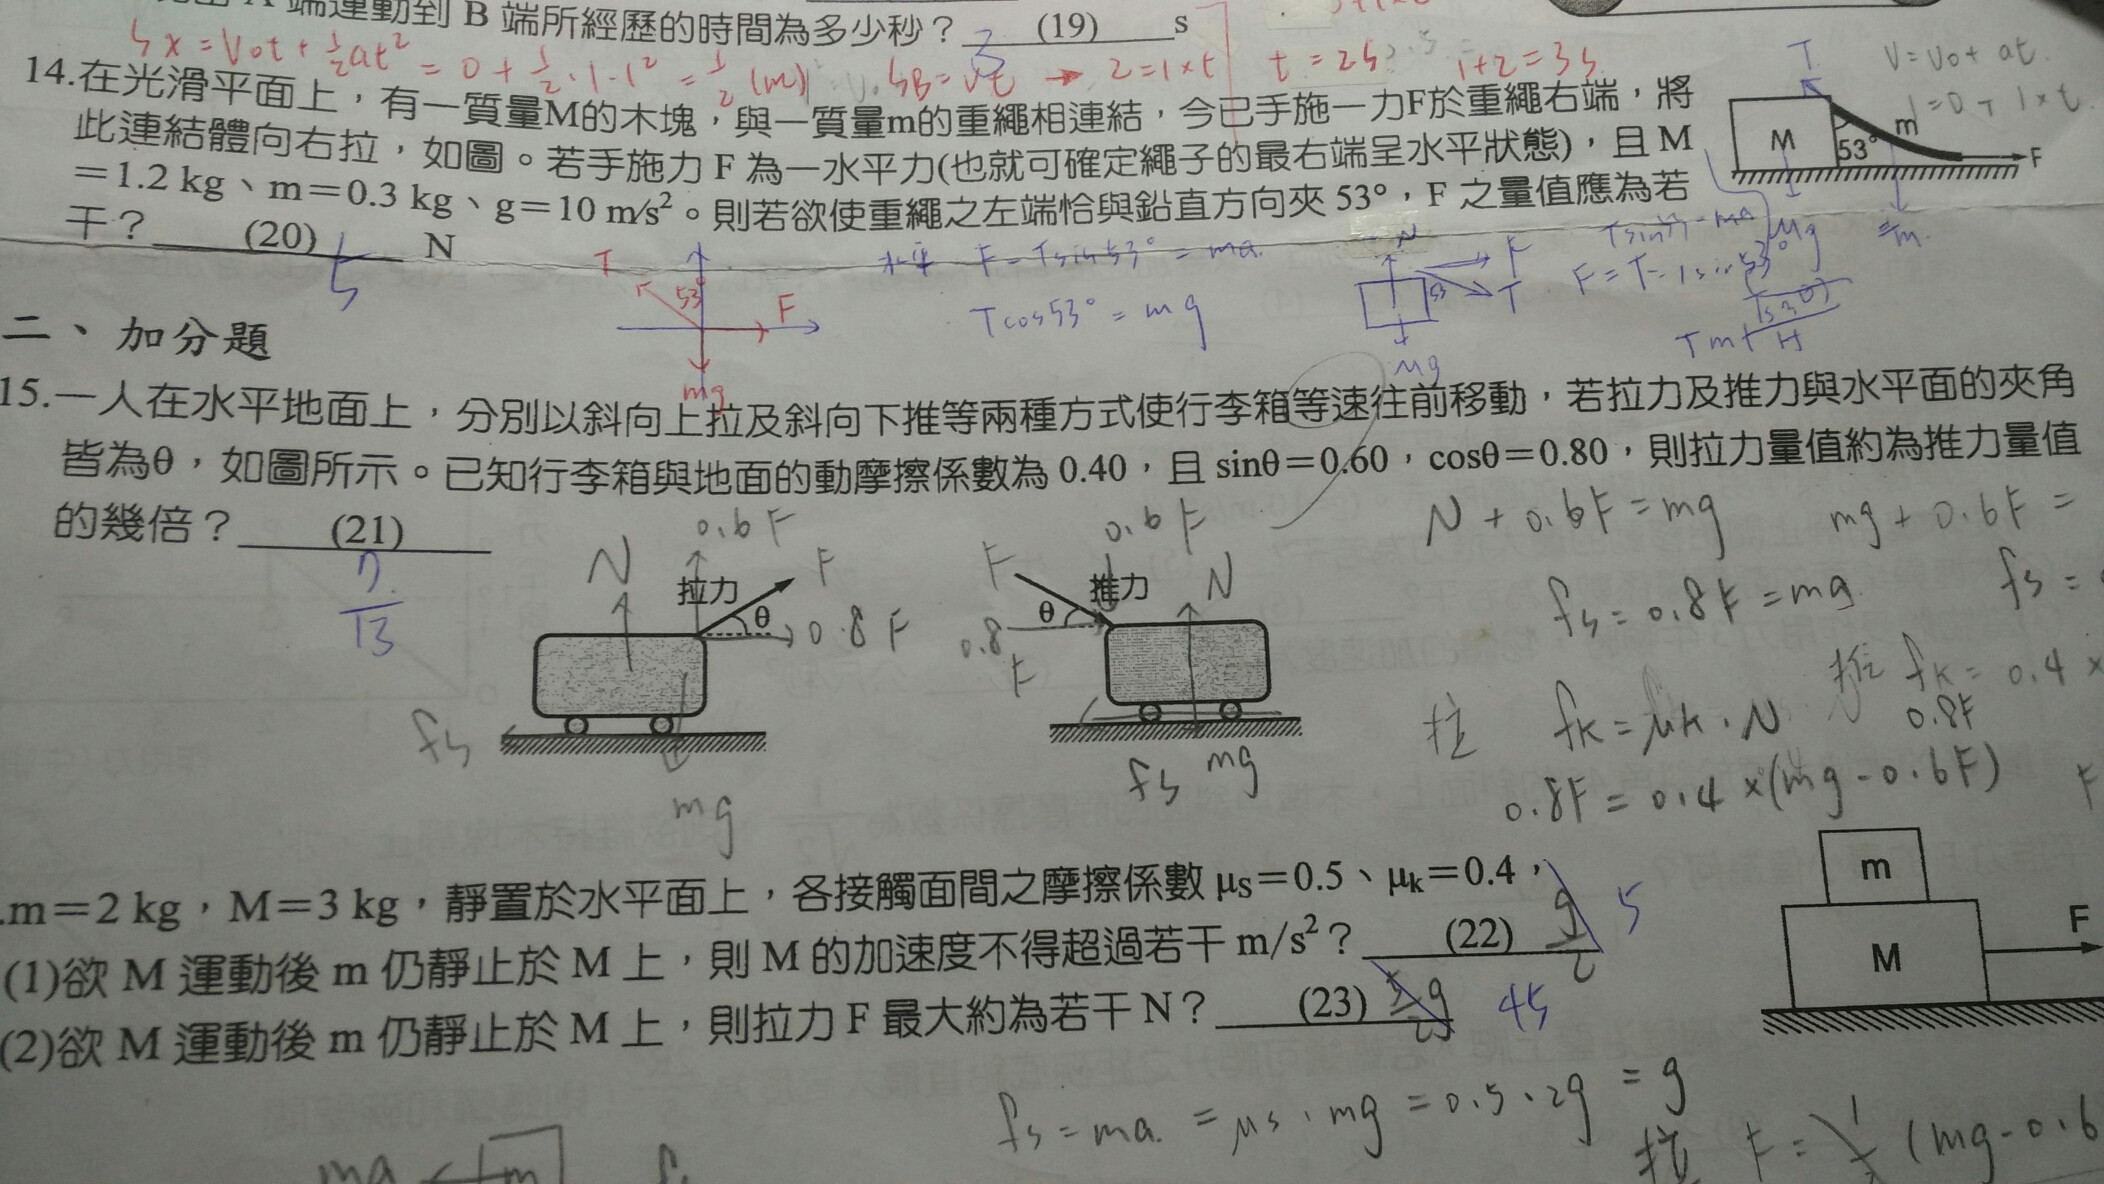 A 端運動到 B 端所經歷的時間為多少秒？ (19) s
3
Sx = Vot + ½at² = 0 + ½·1·1² = ½ (m) SB = Vt → 2=1×t t = 2s 1+2=3s
V=Vo+at
=0+1×t
14.在光滑平面上，有一質量M的木塊，與一質量m的重繩相連結，今已手施一力F於重繩右端，將
此連結體向右拉，如圖。若手施力 F 為一水平力(也就可確定繩子的最右端呈水平狀態)，且 M
＝1.2 kg、m＝0.3 kg、g＝10 m/s²。則若欲使重繩之左端恰與鉛直方向夾 53°，F 之量值應為若
干？ (20) N
5
T
M
53°
m
F
Mg
T
53°
F
mg
水平 F - Tsin53° = ma
Tcos53° = mg
N
F
T
53
Mg
二、加分題
15.一人在水平地面上，分別以斜向上拉及斜向下推等兩種方式使行李箱等速往前移動，若拉力及推力與水平面的夾角
皆為θ，如圖所示。已知行李箱與地面的動摩擦係數為 0.40，且 sinθ＝0.60，cosθ＝0.80，則拉力量值約為推力量值
的幾倍？ (21)
7/13
N
0.6F
拉力
F
θ
0.8F
fs
mg
F
0.6F
推力
N
θ
0.8F
fs
mg
N + 0.6F = mg
mg + 0.6F =
fs = 0.8F = mg
fs =
拉 fk = μk · N
推 fk = 0.4 ×
0.8F
0.8F = 0.4 ×(mg-0.6F)
F
.m＝2 kg，M＝3 kg，靜置於水平面上，各接觸面間之摩擦係數 μs＝0.5、μk＝0.4，
(1)欲 M 運動後 m 仍靜止於 M 上，則 M 的加速度不得超過若干 m/s²？ (22) 5
(2)欲 M 運動後 m 仍靜止於 M 上，則拉力 F 最大約為若干 N？ (23) 45
m
M
F
fs = ma = μs · mg = 0.5 · 2g = g
ma
m
拉 F = (mg-0.6